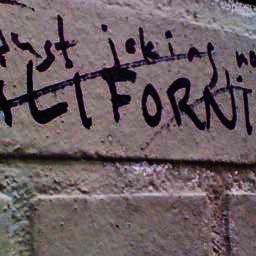 just joking no
ALIFORNI